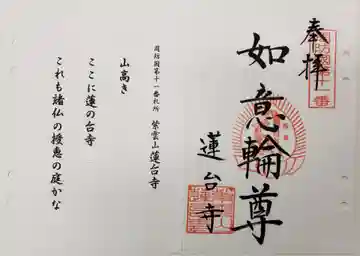 周防國第十一番
奉拝
如意輪尊
蓮台寺
周防国第十一番札所 紫雲山蓮台寺
山高き
ここに蓮の台寺
これも諸仏の授恵の庭かな